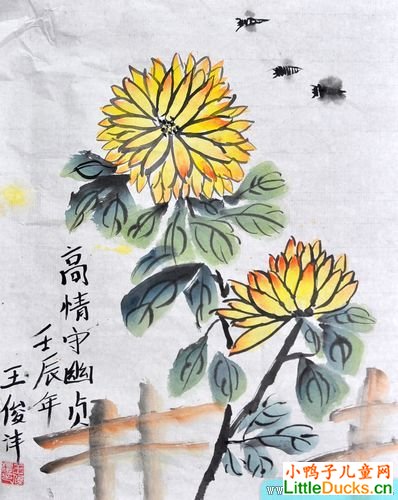 高情守幽贞
壬辰年
王俊沣
小鸭子儿童网
LittleDucks.cn